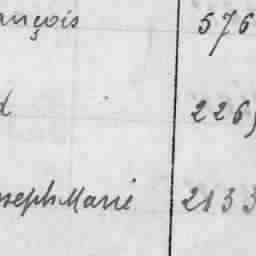 ançois 576
d 2265
oseph Marie 2133